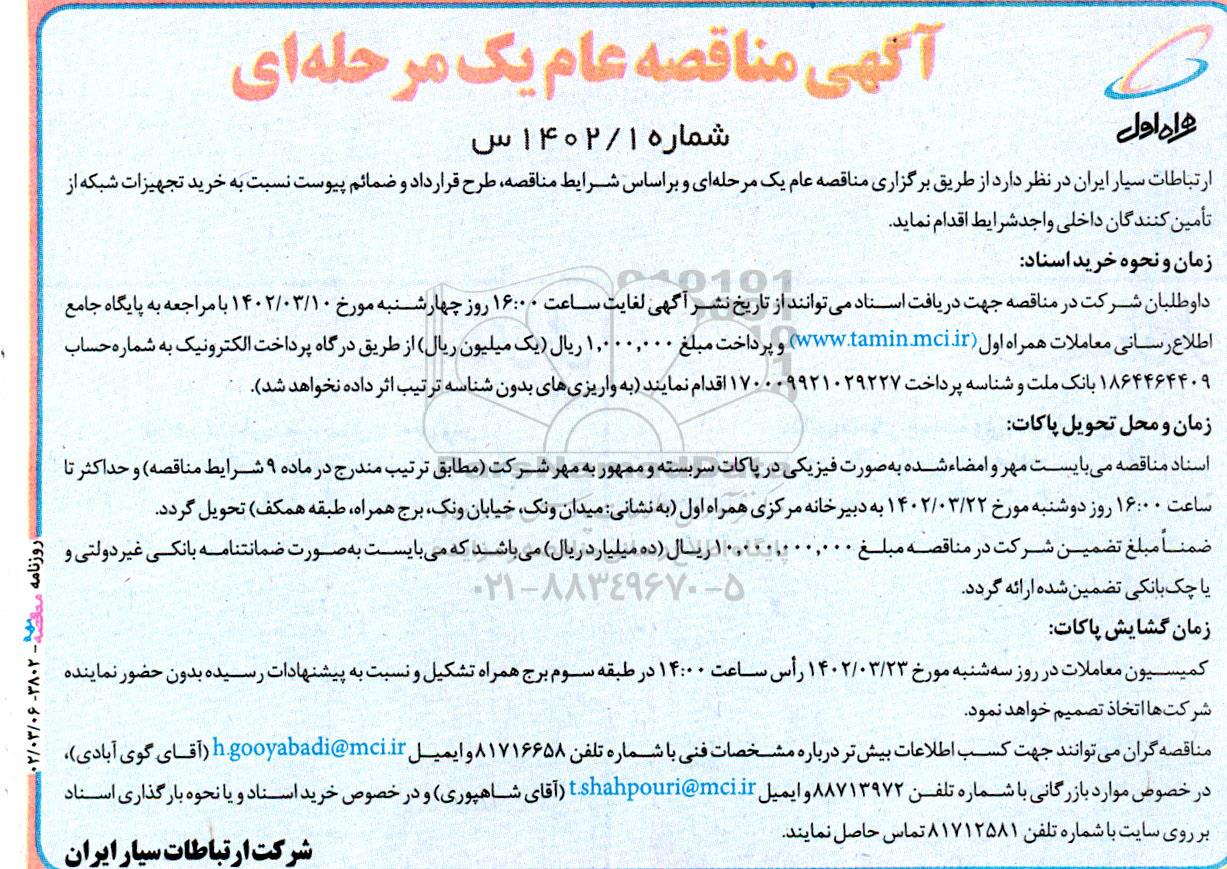 آگهی مناقصه عام یک مرحله‌ای
همراه اول
شماره ۱۴۰۲/۱ س
ارتباطات سیار ایران در نظر دارد از طریق برگزاری مناقصه عام یک مرحله‌ای و براساس شرایط مناقصه، طرح قرارداد و ضمائم پیوست نسبت به خرید تجهیزات شبکه از
تأمین کنندگان داخلی واجدشرایط اقدام نماید.
زمان و نحوه خرید اسناد:
داوطلبان شرکت در مناقصه جهت دریافت اسناد می‌توانند از تاریخ نشر آگهی لغایت ساعت ۱۶:۰۰ روز چهارشنبه مورخ ۱۴۰۲/۰۳/۱۰ با مراجعه به پایگاه جامع
اطلاع‌رسانی معاملات همراه اول (www.tamin.mci.ir) و پرداخت مبلغ ۱,۰۰۰,۰۰۰ ریال (یک میلیون ریال) از طریق درگاه پرداخت الکترونیک به شماره‌حساب
۱۸۶۴۴۶۴۴۰۹ بانک ملت و شناسه پرداخت ۱۷۰۰۰۹۹۲۱۰۲۹۲۲۷ اقدام نمایند (به واریزی‌های بدون شناسه ترتیب اثر داده نخواهد شد).
زمان و محل تحویل پاکات:
اسناد مناقصه می‌بایست مهر و امضاء شده به‌صورت فیزیکی در پاکات سربسته و ممهور به مهر شرکت (مطابق ترتیب مندرج در ماده ۹ شرایط مناقصه) و حداکثر تا
ساعت ۱۶:۰۰ روز دوشنبه مورخ ۱۴۰۲/۰۳/۲۲ به دبیرخانه مرکزی همراه اول (به نشانی: میدان ونک، خیابان ونک، برج همراه، طبقه همکف) تحویل گردد.
ضمناً مبلغ تضمین شرکت در مناقصه مبلغ ۱۰,۰۰۰,۰۰۰,۰۰۰ ریال (ده میلیارد ریال) می‌باشد که می‌بایست به‌صورت ضمانتنامه بانکی غیردولتی و
یا چک بانکی تضمین‌شده ارائه گردد.
۰۲۱-۸۸۳۴۹۶۷۰-۵
زمان گشایش پاکات:
کمیسیون معاملات در روز سه‌شنبه مورخ ۱۴۰۲/۰۳/۲۳ رأس ساعت ۱۴:۰۰ در طبقه سوم برج همراه تشکیل و نسبت به پیشنهادات رسیده بدون حضور نماینده
شرکت‌ها اتخاذ تصمیم خواهد نمود.
مناقصه‌گران می‌توانند جهت کسب اطلاعات بیش‌تر درباره مشخصات فنی با شماره تلفن ۸۱۷۱۶۶۵۸ و ایمیل h.gooyabadi@mci.ir (آقای گوی آبادی)،
در خصوص موارد بازرگانی با شماره تلفن ۸۸۷۱۳۹۷۲ و ایمیل t.shahpouri@mci.ir (آقای شاهپوری) و در خصوص خرید اسناد و یا نحوه بارگذاری اسناد
بر روی سایت با شماره تلفن ۸۱۷۱۲۵۸۱ تماس حاصل نمایند.
شرکت ارتباطات سیار ایران
روزنامه مناقصه - ۳۸۰۲ - ۰۲/۰۳/۰۶